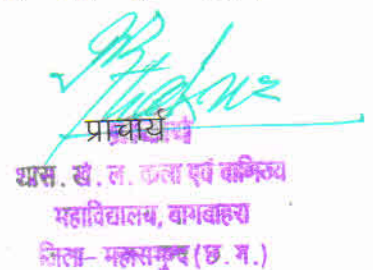 प्राचार्य
शास. खं. ल. कला एवं वाणिज्य
महाविद्यालय, बागबाहरा
जिला- महासमुन्द (छ.ग.)